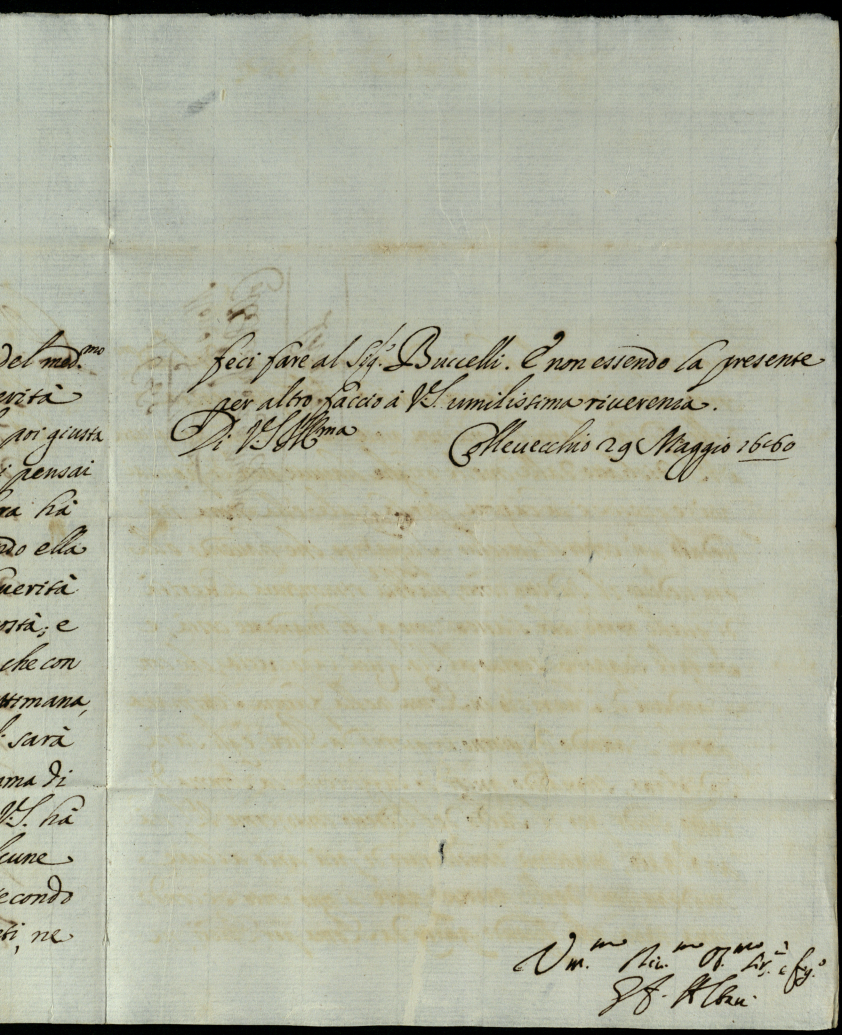 del med.mo
erità
poi giusta
i pensai
ra hà
ndo ella
uerità
ostà; e
che con
ttimana,
sarà
ama di
V.S. hà
cune
econdo
ti, ne
feci fare al Sig.r Buccelli. E non essendo la presente
per altro faccio à V.S. umilissima riuerenza.
Di V.S. Ill.ma
Colleuecchio 29 Maggio 1660
Um.mo Riu.mo Ob.mo